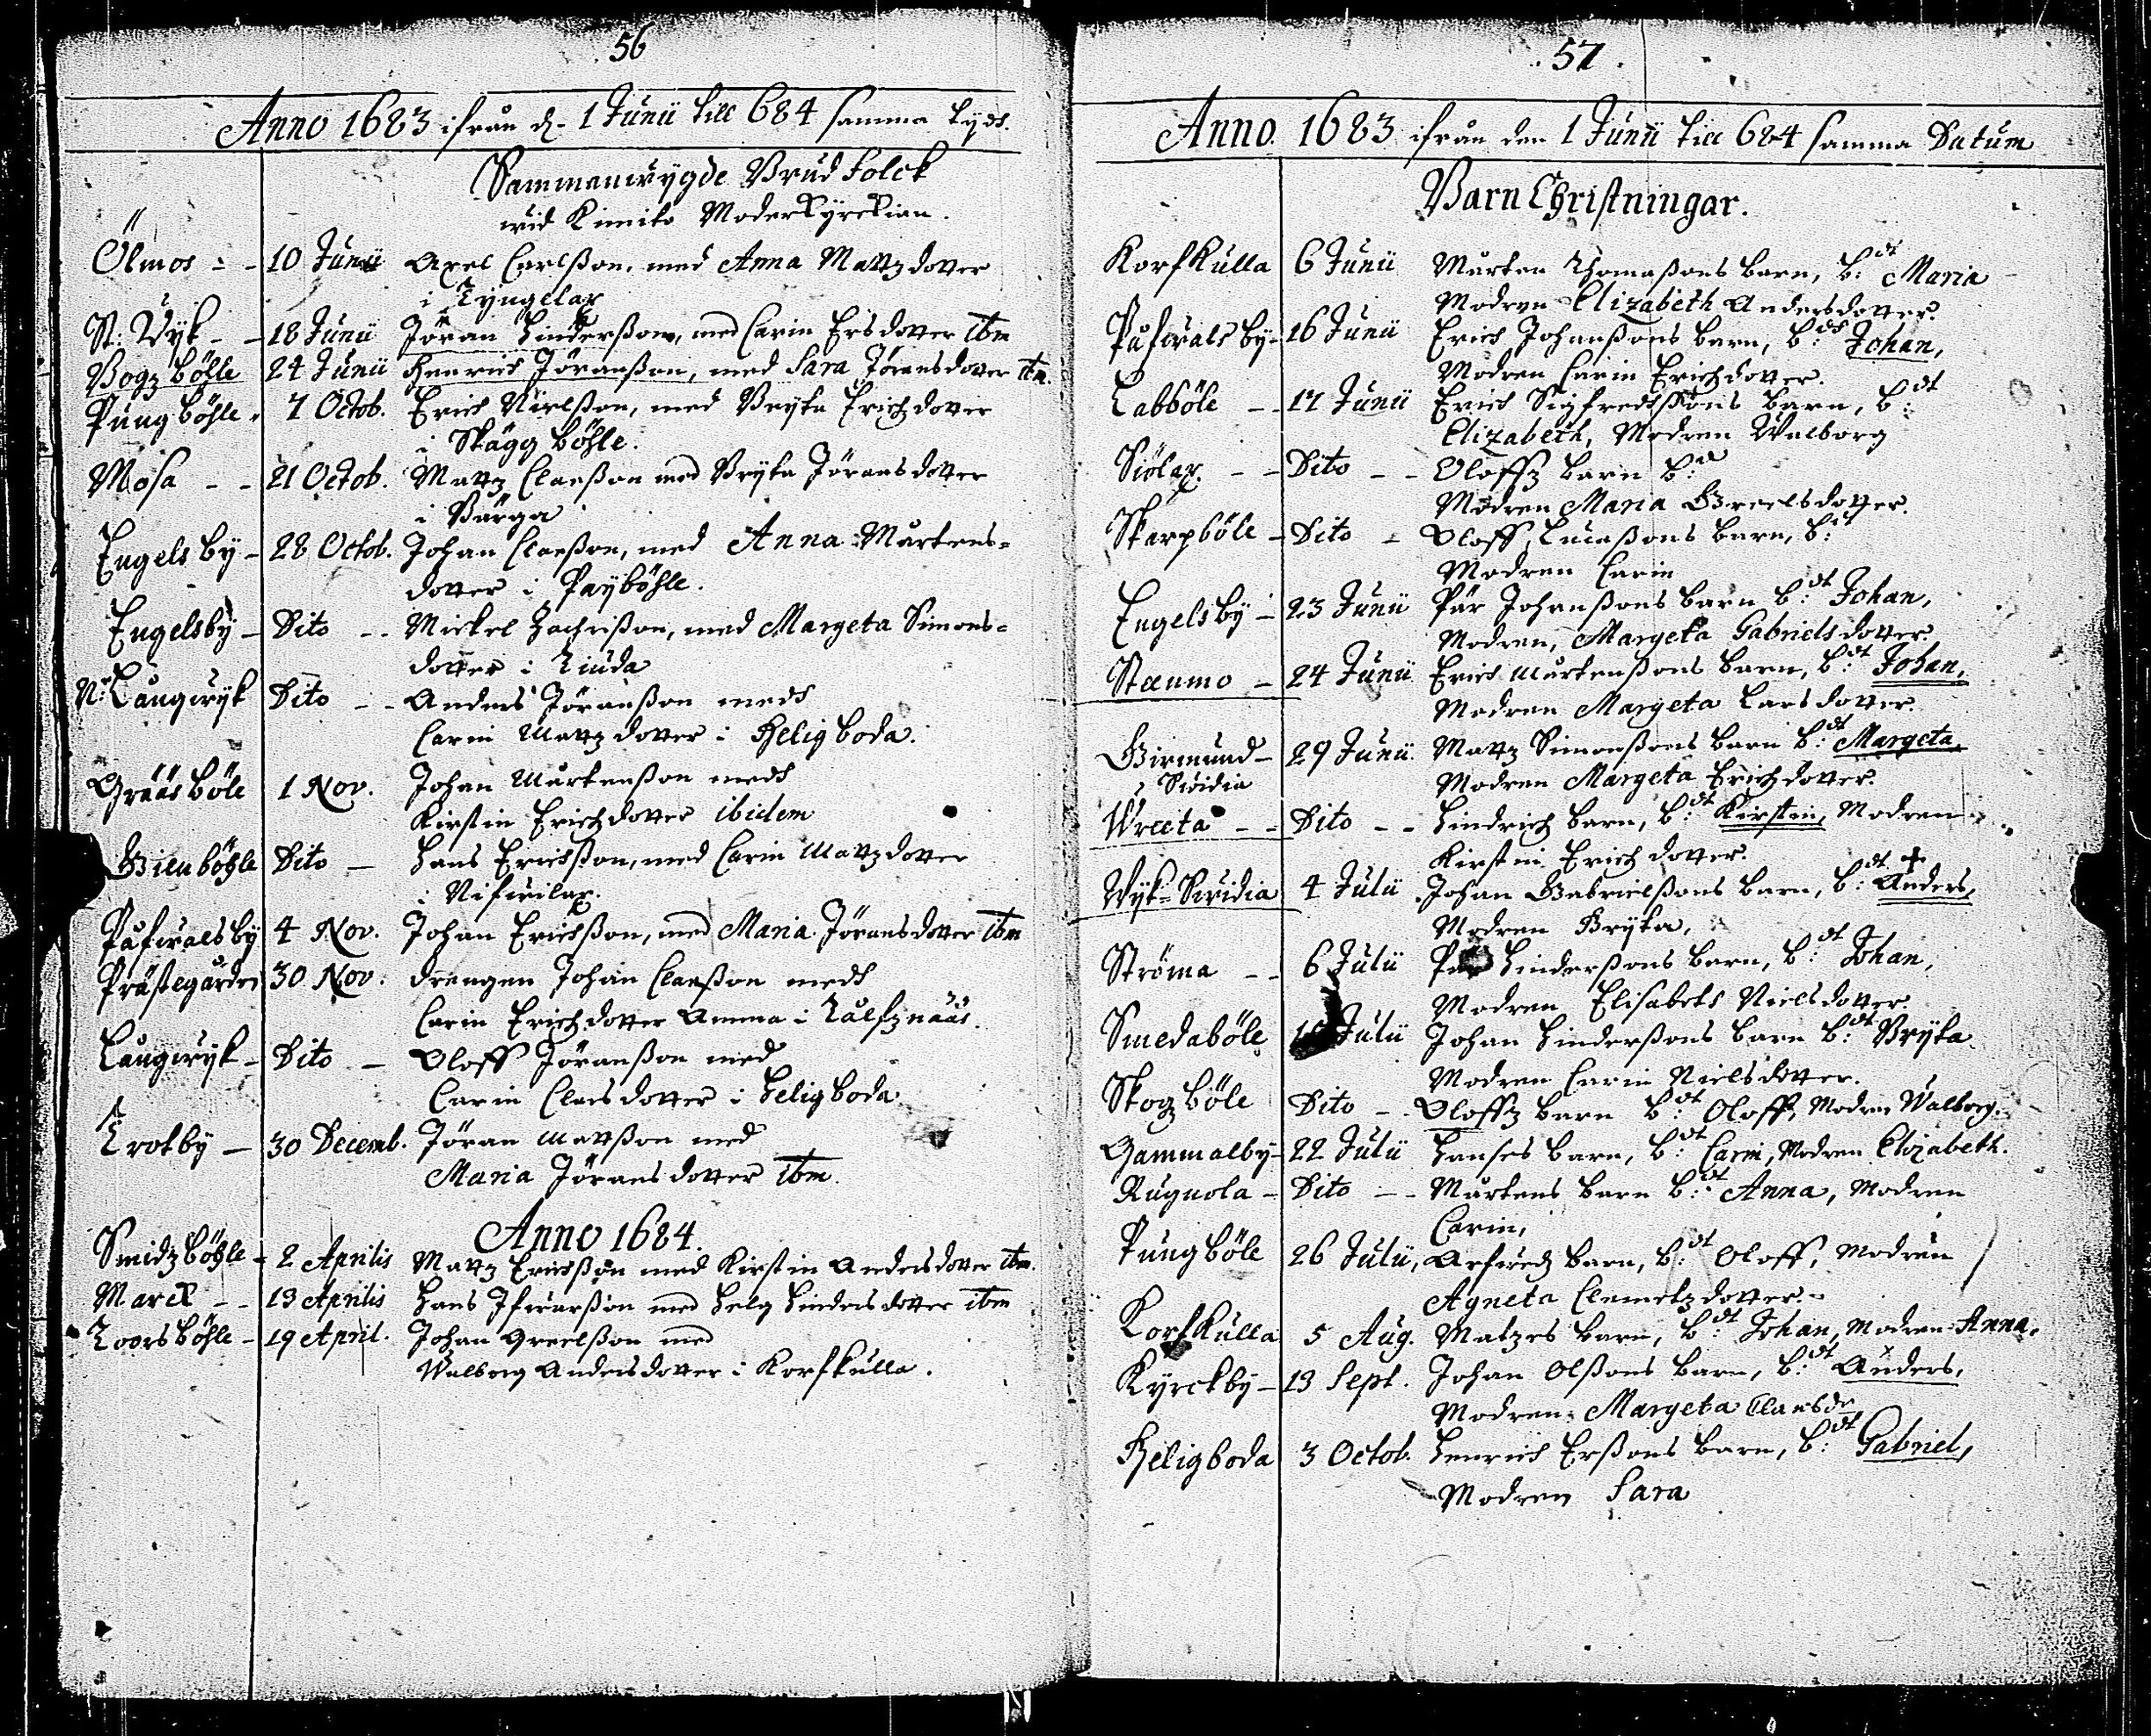 56
Anno 1683 ifrån d. 1 Junii till 684 samma tydh.
Sammanwygde Brud Folck
wid Kimito Moderkyrckian.
Ölmos - - 10 Junii Axel Carlßon, med Anna Mattz dotter
i Tyngelax
St: Wyk - - 18 Junii Jöran Hinderßon, med Carin Ersdotter ibm
Bogz böhle 24 Junii Henrich Jöranßon, med Sara Jöransdotter ibm.
Pungböhle - 7 Octob. Erich Nielßon, med Bryta Erichzdotter
i Skäggböhle.
Mosa - - 21 Octob. Mattz Claeßon med Bryta Jöransdotter
i Bärga
Engelsby - 28 Octob. Johan Claeßon, med Anna Mårtens-
dotter i Payböhle.
Engelsby - Dito - - Mickel Zachrißon, med Margeta Simons-
dotter i Linda
N: Långwyk Dito - - Anders Jöranßon medh
Carin Mattzdotter i Heligboda.
Grääsböle 1 Nov. Johan Mårtenßon medh
Kirstin Erichzdotter ibidem
Gilluböhle Dito - Hans Erichßon, med Carin Mattzdotter
i Nifwilax.
Påfwalsby 4 Nov. Johan Erichßon, med Maria Jöransdotter ibm
Prästegården 30 Nov. drengen Johan Claeßon medh
Carin Erichzdotter Amma i Kålfznääs.
Långwyk - Dito - Oloff Jöranßon med
Carin Claesdotter i Heligboda
Trotby - 30 Decemb. Jöran Mattßon med
Maria Jöransdotter ibm.
Anno 1684.
Smidzböhle - 2 Aprilis Mattz Erichßon med Kirstin Andersdotter ibm.
Marck - - 13 Aprilis Hans Ifwarßon med Helg Hindersdotter ibm
Toorsböhle - 19 April. Johan Greelßon med
Walborg Andersdotter i Korfkulla.
57.
Anno. 1683 ifrån den 1 Junii till 684 samma Datum
Barn Christningar.
Korfkulla 6 Junii Mårten Thomaßons barn, b:dt Maria
Modren Elizabeth Andersdotter.
Påfwalsby - 16 Junii Erich Johanßons barn, b:dt Johan,
Modren Carin Erichzdotter.
Labböle - - 17 Junii Erich Sigfredhssons barn, b:dt
Elizabeth, Modren Walborg
Siölax. - - Dito - - Oloffz barn b:dt
Modren Maria Greelsdotter.
Skarpböle - Dito - Oloff Lucaßons barn, b:
Modren Carin
Engelsby - 23 Junii Pär Johanßons barn b:dt Johan,
Modren, Margeta Gabrielsdotter
Stærmo - 24 Junii Erich Mårtenßons barn, b:dt Johan,
Modren Margeta Larsdotter.
Girmund - 29 Junii. Mattz Simonßons barn b:dt Margeta,
Modren Margeta Erichzdotter.
Wreeta - - Dito - - Hindrich barn, b:dt Kirstin, Modren
Kirstin Erichzdotter.
4 Julii Johan Gabrielßons barn, b:dt Anders, +
Modren Bryta,
Ströma - - 6 Julii Pär Hinderßons barn, b:dt Johan,
Modren Elisabeth Nielsdotter.
Smedaböle Julii Johan Hinderßons barn b:dt Bryta
Modren Carin Nielsdotter.
Skogböle Dito - Oloffz barn b:dt Oloff, Modren Walborg.
Gammalby - 22 Julii Hanses barn, b:dt Carin, Modren Elizabeth.
Rugnola - Dito - - Mårtens barn b:dt Anna, Modren
Carin,
Pungböle 26 Julii, Arfwedz barn, b:dt Oloff, Modren
Agneta Clemetzdotter -
Korfkulla 5 Aug. Matzes barn, b:dt Johan, Modren Anna.
Kyrckby - 13 Sept. Johan Olßons barn, b:dt Anders,
Modren Margeta Claesdr
Heligboda 3 Octob. Henrich Erßons barn, b:dt Gabriel,
Modren Sara